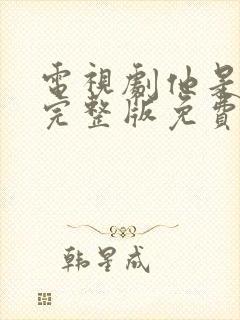 電視劇他是
完整版免費
韩星成